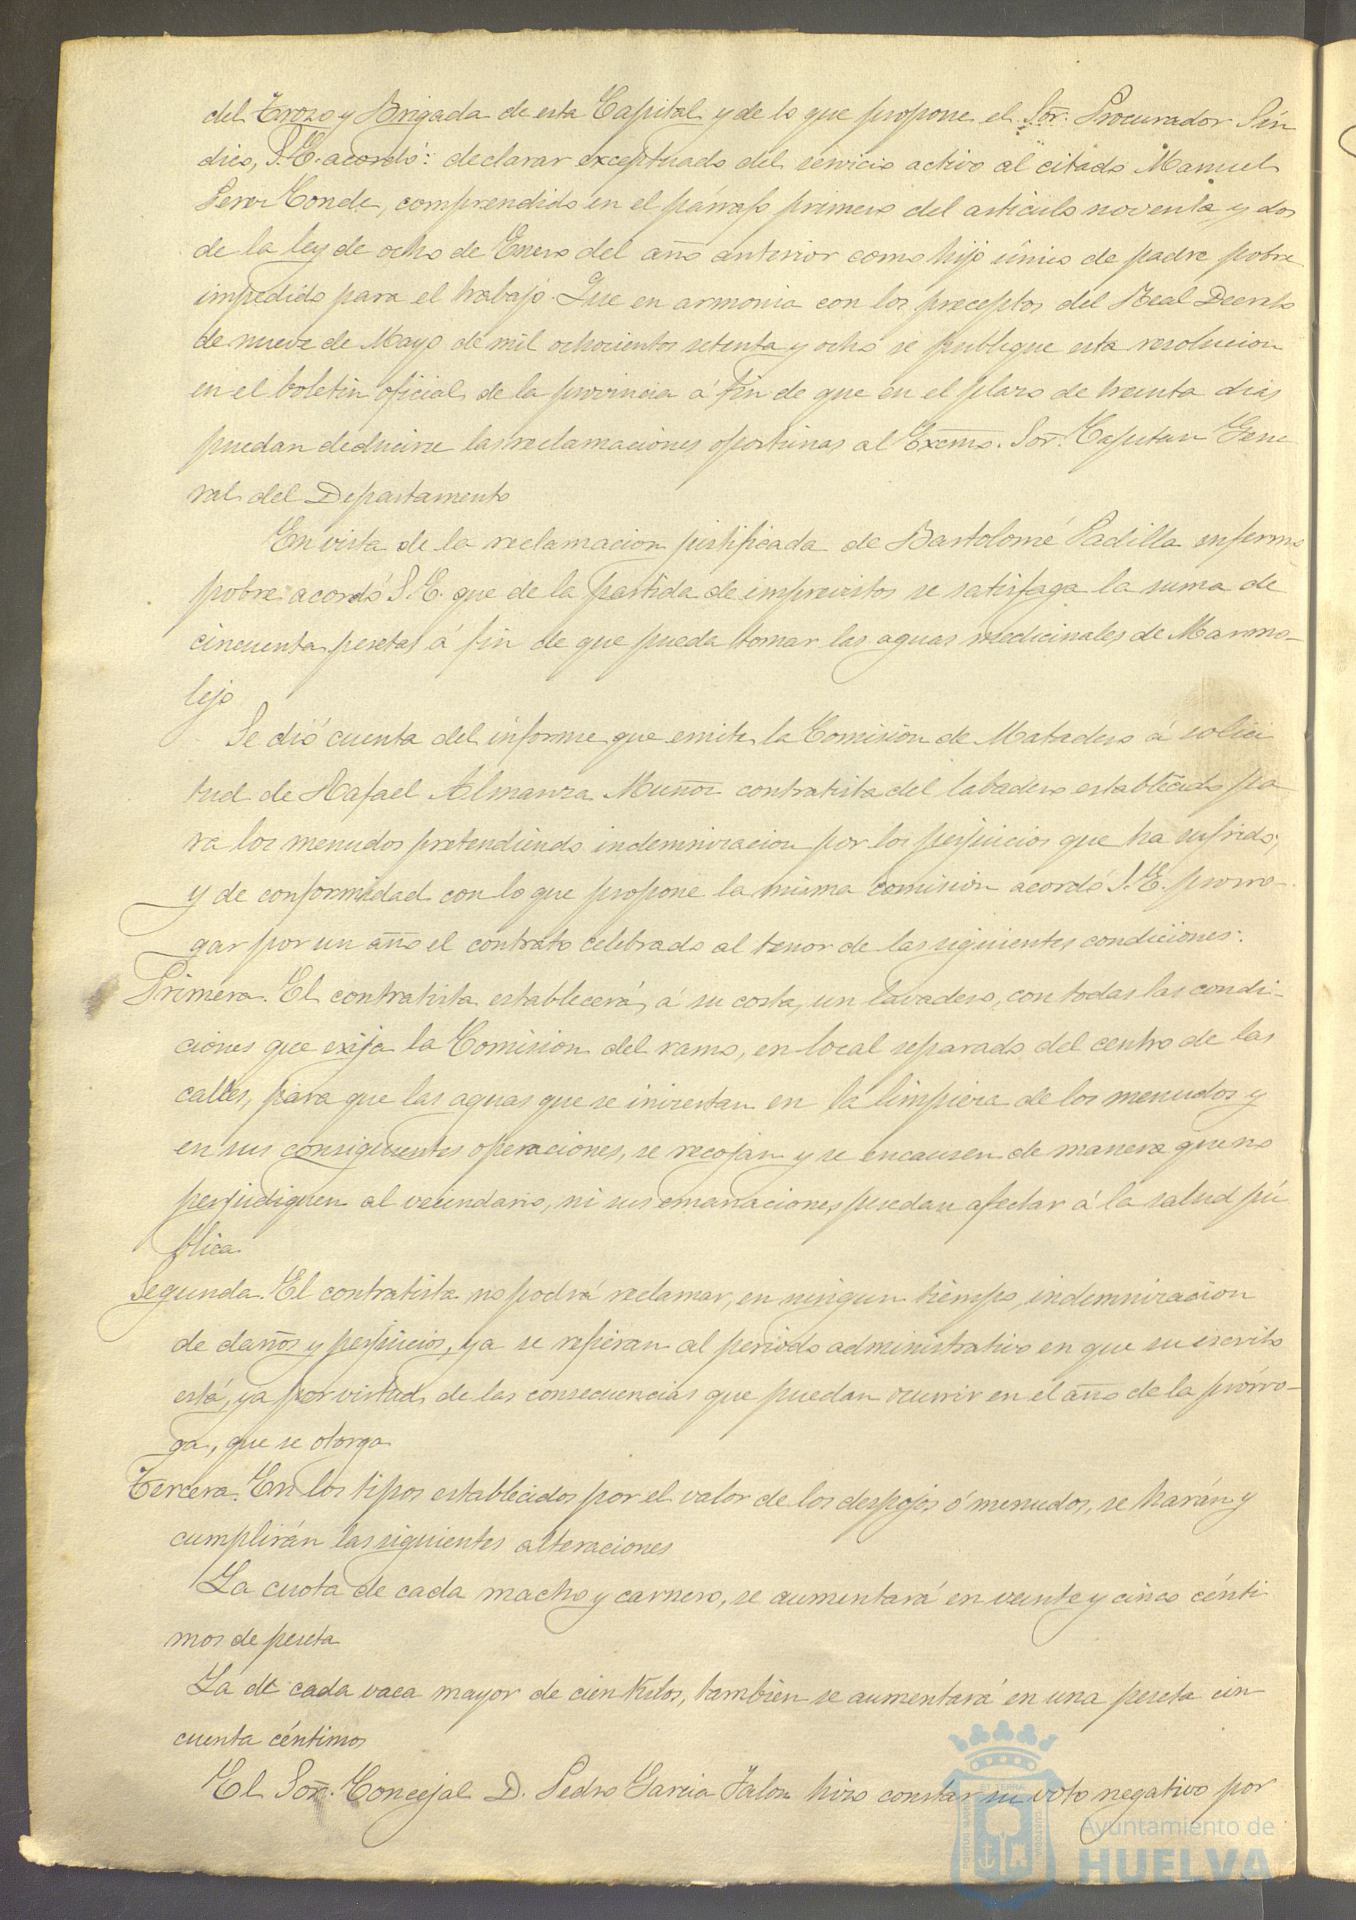 del Trozo y Brigada de esta Capital y de lo que propone el Sor. Procurador Sín
dico, S.E. acordó: declarar exceptuado del servicio activo al citado Manuel
Conde, comprendido en el párrafo primero del artículo noventa y dos
de la ley de ocho de Enero del año anterior como hijo único de padre pobre
impedido para el trabajo. Que en armonia con los preceptos del Real Decreto
de nueve de Mayo de mil ochocientos setenta y ocho se publique esta resolucion
en el boletin oficial de la provincia á fin de que en el plazo de treinta dias
puedan deducirse las reclamaciones oportunas al Excmo. Sor. Capitan Gene
ral del Departamento
En vista de la reclamacion justificada de Bartolomé Padilla enfermo
pobre acordó S.E. que de la partida de imprevistos se satisfaga la suma de
cincuenta pesetas á fin de que pueda tomar las aguas medicinales de Marmo-
lejo
Se dió cuenta del informe que emite la Comisión de Matadero á solici
tud de Rafael Almanza Muñoz contratista del labadero establecido pa
ra los menudos pretendiendo indemnizacion por los perjuicios que ha sufrido;
y de conformidad con lo que propone la misma comisión acordó S.E. prorro-
gar por un año el contrato celebrado al tenor de las siguientes condiciones:
Primera. El contratista establecerá, á su costa, un lavadero, con todas las condi-
ciones que exija la Comision del ramo, en local separado del centro de las
calles, para que las aguas que se inviertan en la limpieza de los menudos y
en sus consiguientes operaciones, se recojan y se encausen de manera que no
perjudiquen al vecindario, ni sus emanaciones puedan afectar á la salud pú
blica.
Segunda. El contratista no podrá reclamar, en ningun tiempo, indemnizacion
de daños y perjuicios, ya se refieran al periodo administrativo en que suscrito
está, ya por virtud de las consecuencias que puedan ocurrir en el año de la prórro-
ga, que se otorga
Tercera. En los tipos establecidos por el valor de los despojos ó menudos, se harán y
cumplirán las siguientes alteraciones
La cuota de cada macho y carnero, se aumentará en veinte y cinco cénti
mos de peseta
La de cada vaca mayor de cien kilos, tambien se aumentará en una peseta cin
cuenta céntimos
El Sor. Concejal D. Pedro Garcia Jalon hizo constar su voto negativo por
Ayuntamiento de
HUELVA